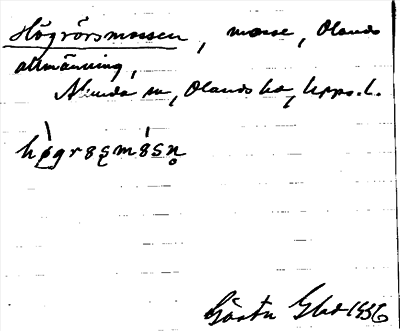 Högrörsmossen, mosse, Olands
allmänning,
Alunda sn, Olands hd, Upps. l.
högrɞʂmɞsn̥
Gösta 1936